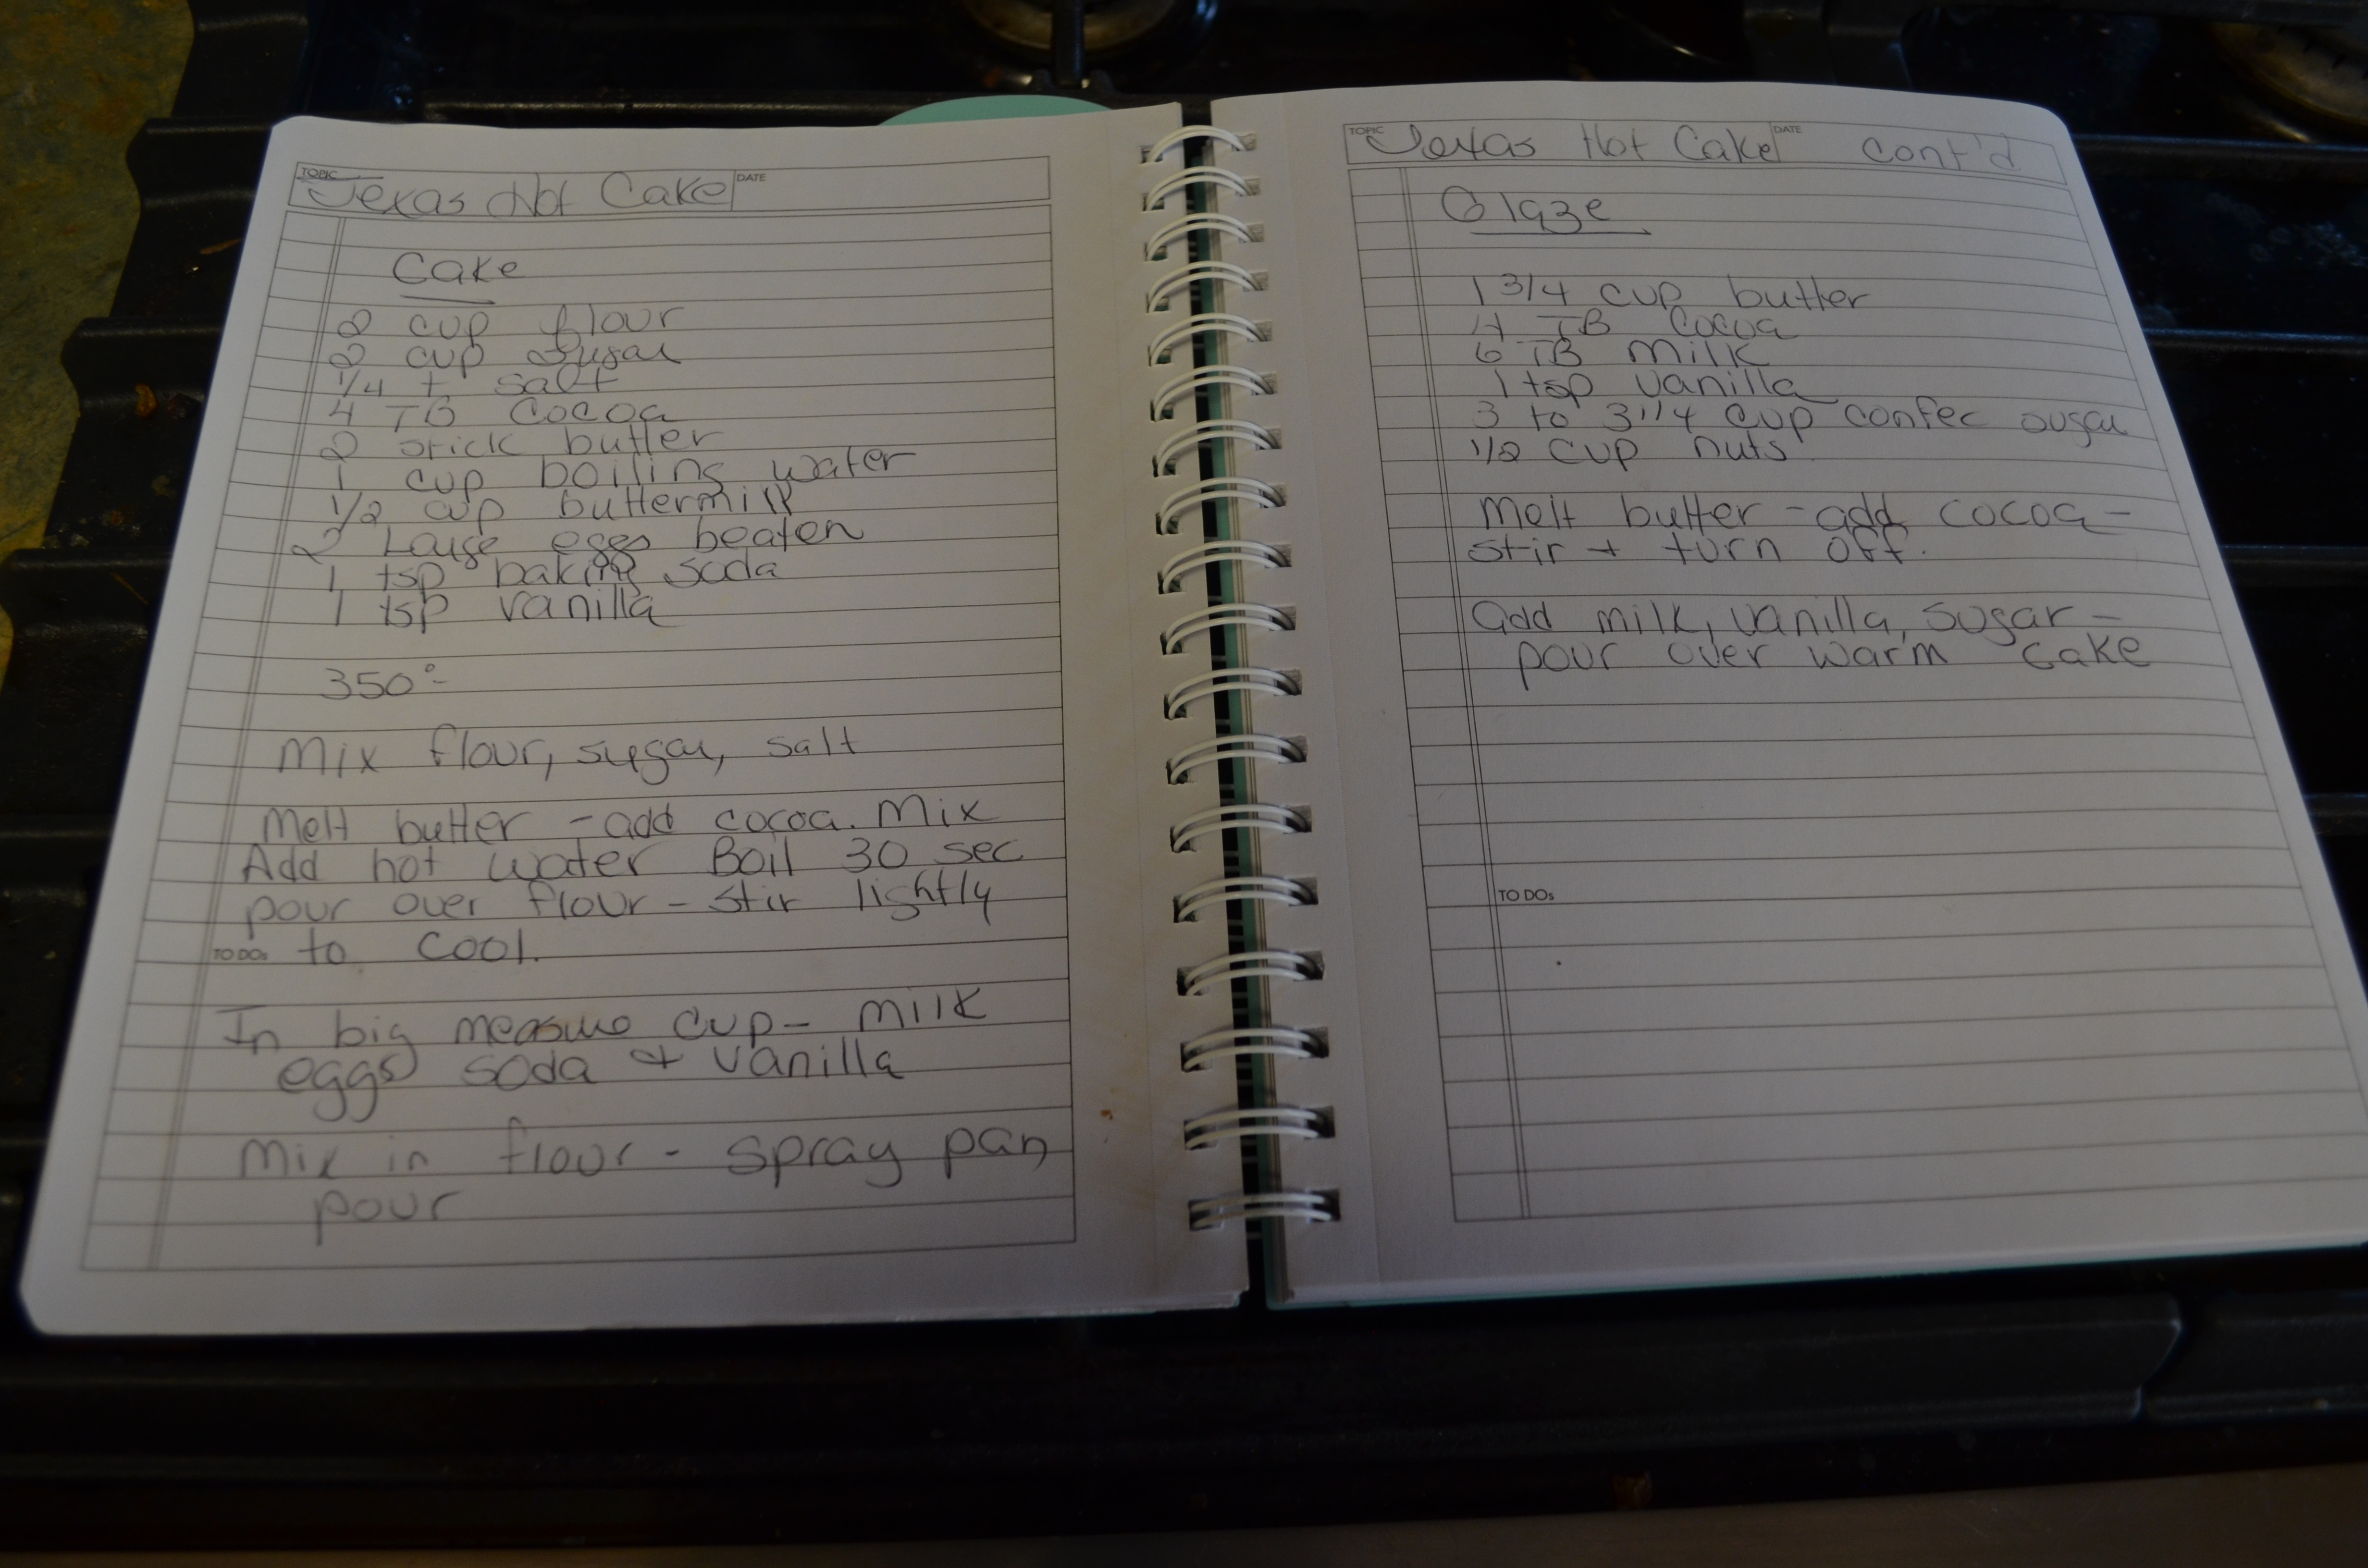 TOPIC
Texas Hot Cake
DATE
Cake
2 cup flour
2 cup sugar
1/4 t salt
4 TB Cocoa
2 stick butter
1 cup boiling water
1/2 cup buttermilk
2 Large eggs beaten
1 tsp baking soda
1 tsp vanilla
350°
Mix flour, sugar, salt
Melt butter - add cocoa. Mix
Add hot water Boil 30 sec
pour over flour - stir lightly
TO DOs
to cool.
In big measure cup - milk
eggs soda + vanilla
Mix in flour - spray pan
pour
TOPIC
Texas Hot Cake
DATE
cont'd
Glaze
1 3/4 cup butter
4 TB Cocoa
6 TB milk
1 tsp vanilla
3 to 3 1/4 cup confec sugar
1/2 cup nuts
Melt butter - add cocoa -
stir + turn off.
Add milk, vanilla, sugar -
pour over warm cake
TO DOs